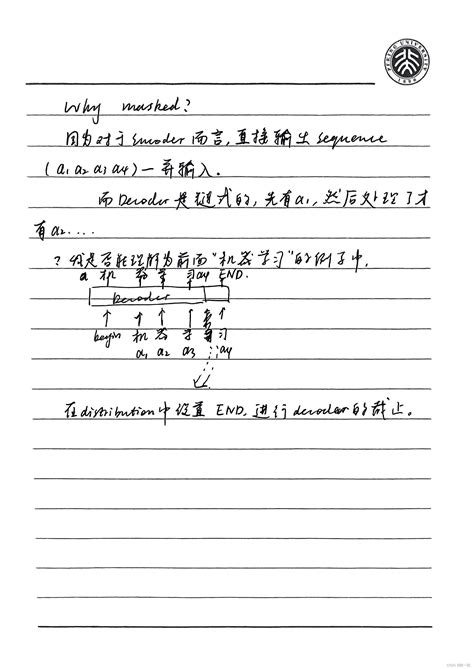 PEKING UNIVERSITY
1898
Why masked?
因为对于 Encoder 而言,直接输出 sequence
(a1 a2 a3 a4) 一并输入.
而 Decoder 是链式的,先有 a1,然后处理了才
有 a2....
? 我是否能理解为前面“机器学习”的例子中,
a 机 器 学 习 a4 END.
Decoder
begin 机 器 学 习
a1 a2 a3 a4
在 distribution 中设置 END. 进行 decoder 的截止。